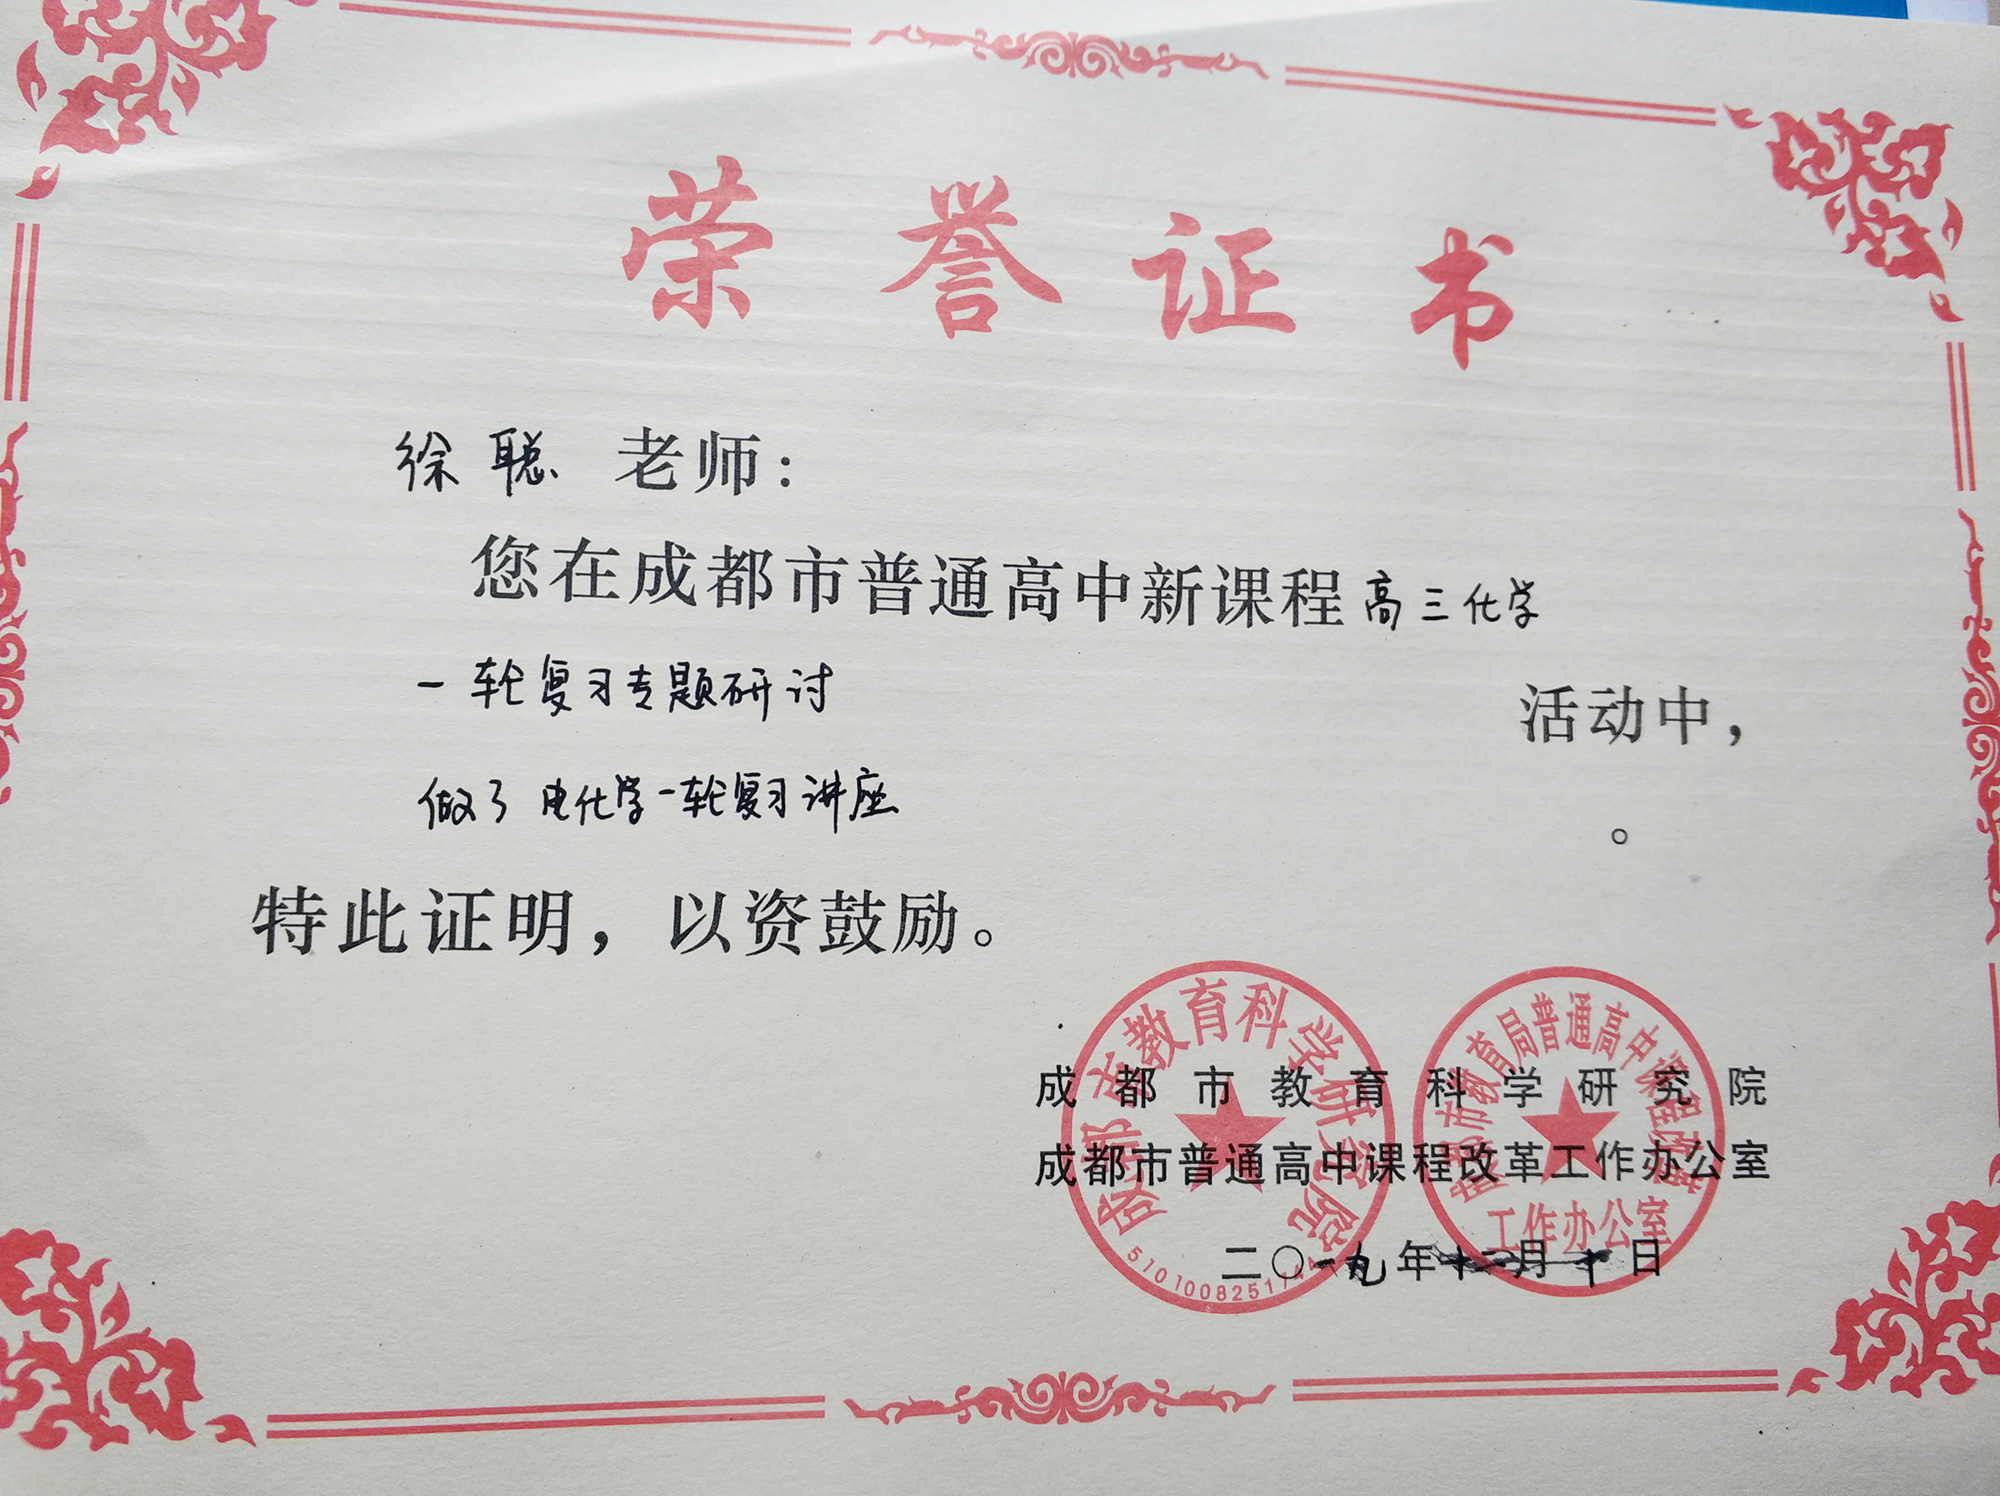 荣誉证书
徐聪 老师：
您在成都市普通高中新课程高三化学
一轮复习专题研讨 活动中，
做了 电化学一轮复习讲座 。
特此证明，以资鼓励。
成都市教育科学研究院
成都市普通高中课程改革工作办公室
二〇一九年十二月十日
成都市教育科学研究院
成都市教育局普通高中课程改革
工作办公室